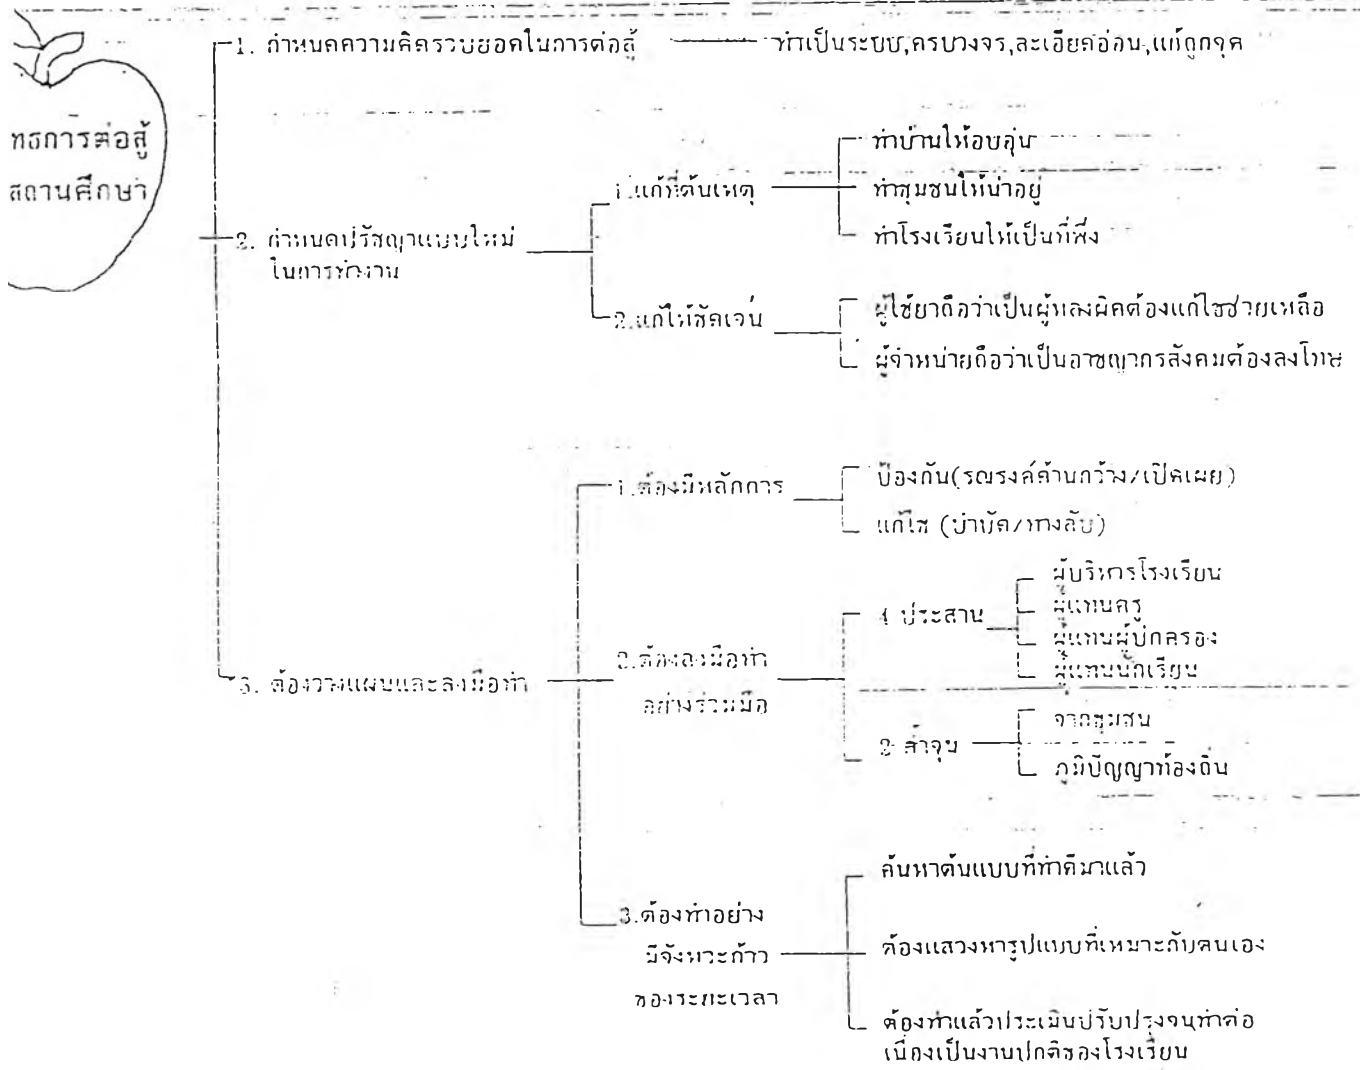 1. กำหนดความคิดรวบยอดในการต่อสู้
ทำเป็นระบบ,ครบวงจร,ละเอียดอ่อน,แก้ถูกจุด
ทธการต่อสู้
สถานศึกษา
2. กำหนดปรัชญาแบบใหม่
ในการทำงาน
1.แก้ที่ต้นเหตุ
ทำบ้านให้อบอุ่น
ทำชุมชนให้น่าอยู่
ทำโรงเรียนให้เป็นที่พึ่ง
2.แก้ให้ชัดเจน
ผู้ใช้ยาถือว่าเป็นผู้หลงผิดต้องแก้ไขช่วยเหลือ
ผู้จำหน่ายถือว่าเป็นอาชญากรสังคมต้องลงโทษ
3. ต้องวางแผนและลงมือทำ
1.ต้องมีหลักการ
ป้องกัน(รณรงค์ด้านกว้าง/เปิดเผย)
แก้ไข (บำบัด/ทางลับ)
2.ต้องลงมือทำ
อย่างร่วมมือ
4 ประสาน
ผู้บริหารโรงเรียน
ผู้แทนครู
ผู้แทนผู้ปกครอง
ผู้แทนนักเรียน
2 ค้ำจุน
จากชุมชน
ภูมิปัญญาท้องถิ่น
3.ต้องทำอย่าง
มีจังหวะก้าว
ของระยะเวลา
ค้นหาต้นแบบที่ทำดีมาแล้ว
ต้องแสวงหารูปแบบที่เหมาะกับตนเอง
ต้องทำแล้วประเมินปรับปรุงจนทำต่อ
เนื่องเป็นงานปกติของโรงเรียน